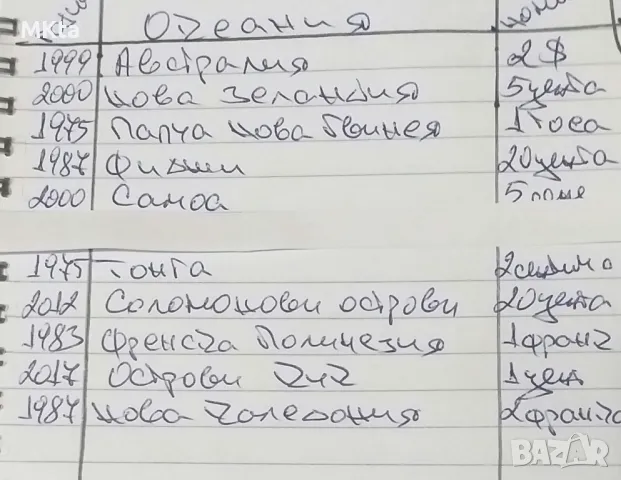 MKta
Океания
1999 Австралия 2 $
2000 нова Зеландия 5 цента
1975 Папуа нова Гвинея 1 тоеа
1987 Фижи 20 цента
2000 Самоа 5
1975 Тонга 2 сенити
2012 Соломонови острови 20 цента
1983 Френска Полинезия 1 франк
2017 Острови Кук 1 цент
1987 нова Каледония 2 франка
BAZAR